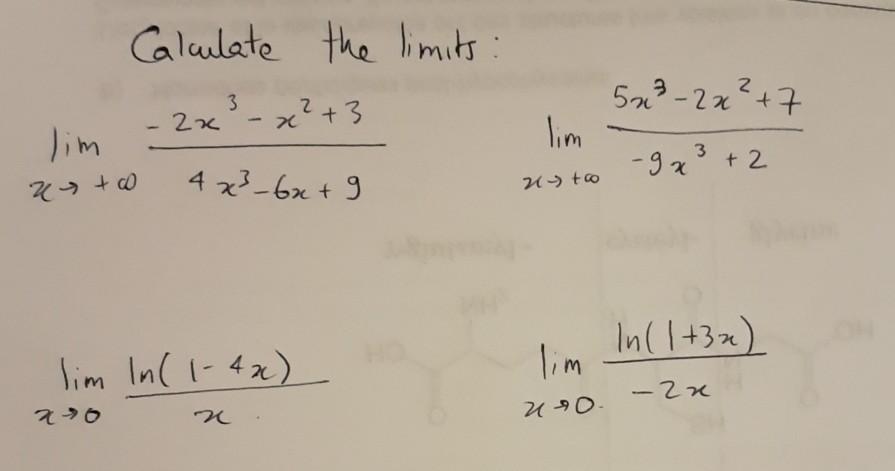 Calculate the limits:
lim x→+∞ (-2x³ - x² + 3)/(4x³ - 6x + 9)
lim x→+∞ (5x³ - 2x² + 7)/(-9x³ + 2)
lim x→0 ln(1 - 4x)/x
lim x→0 ln(1+3x)/(-2x)